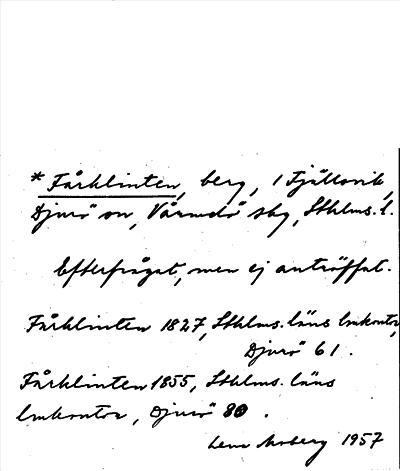 * Fårklinten, berg, i Fjällsvik,
Djurö sn, Värmdö skg, Sthlms. l.
Efterfrågat, men ej anträffat.
Fårklinten 1827, Sthlms. läns lmkontor,
Djurö 61.
Fårklinten 1855, Sthlms. läns
lmkontor, Djurö 80.
Lena Moberg 1957